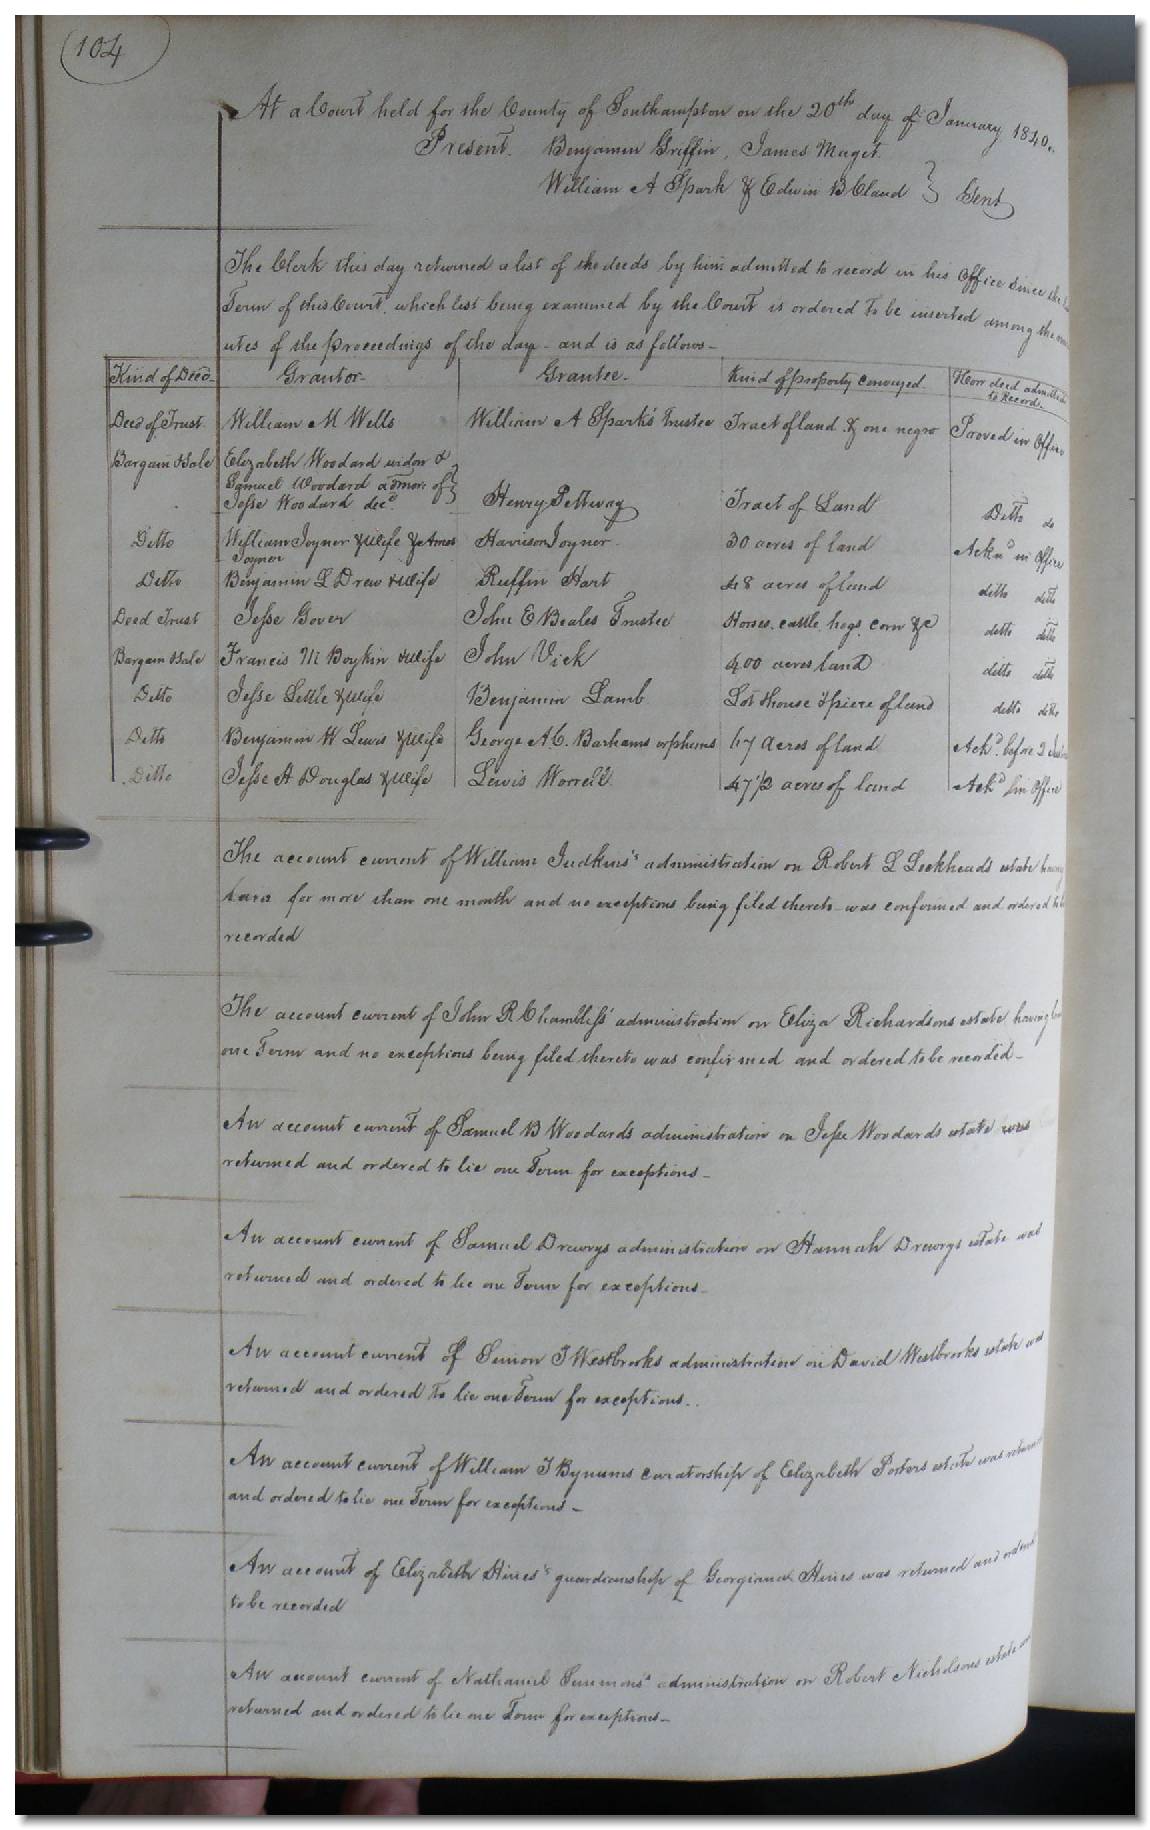 104
At a Court held for the County of Southampton on the 20th day of January 1840.
Present. Benjamin Griffin, James Maget
William A Spark & Edwin B Claud } Gent
The Clerk this day returned a list of the deeds by him admitted to record in his Office since the
Term of this Court, which list being examined by the Court is ordered to be inserted among the
utes of the proceedings of the day - and is as follows -
Kind of Deed - Grantor - Grantee. Kind of property conveyed How deed admitted to Record.
Deed of Trust William M Wells William A Sparks' Trustee Tract of land & one negro Proved in Office
Bargain & Sale Elizabeth Woodard widow &
Samuel Woodard admor. of
Jesse Woodard decd. } Henry Pettway Tract of Land Ditto do
Ditto William Joyner & wife & Amos Joyner Harrison Joyner 30 acres of land Acknd in Office
Ditto Benjamin L Drew & wife Ruffin Hart 48 acres of land ditto ditto
Deed Trust Jesse Gover John E Beales Trustee Horses, cattle, hogs, corn &c ditto ditto
Bargain & Sale Francis M Boykin & wife John Vick 400 acres land ditto ditto
Ditto Jesse Little & wife Benjamin Lamb Lot & house & piece of land ditto ditto
Ditto Benjamin W Lewis & wife George A C. Barhams orphans 67 acres of land Ackd. before 2
Ditto Jesse A Douglas & wife Lewis Worrell 47 1/2 acres of land Ackd in Office
The account current of William Judkins's administration on Robert L Lockheads estate having
for more than one month and no exceptions being filed thereto - was confirmed and ordered to be
recorded
The account current of John R Chambliss' administration on Eliza Richardsons estate having
one Term and no exceptions being filed thereto was confirmed and ordered to be recorded -
An account current of Samuel B Woodards administration on Jesse Woodards estate was
returned and ordered to lie one Term for exceptions -
An account current of Samuel Drewrys administration on Hannah Drewrys estate was
returned and ordered to lie one Term for exceptions -
An account current of Simon T Westbrooks administration on David Westbrooks estate was
returned and ordered to lie one Term for exceptions..
An account current of William T Bynums curatorship of Elizabeth Porters estate was returned
and ordered to lie one Term for exceptions -
An account of Elizabeth Hines's guardianship of Georgiana Hines was returned and ordered
to be recorded
An account current of Nathaniel Simmons's administration on Robert Nicholsons estate was
returned and ordered to lie one Term for exceptions -